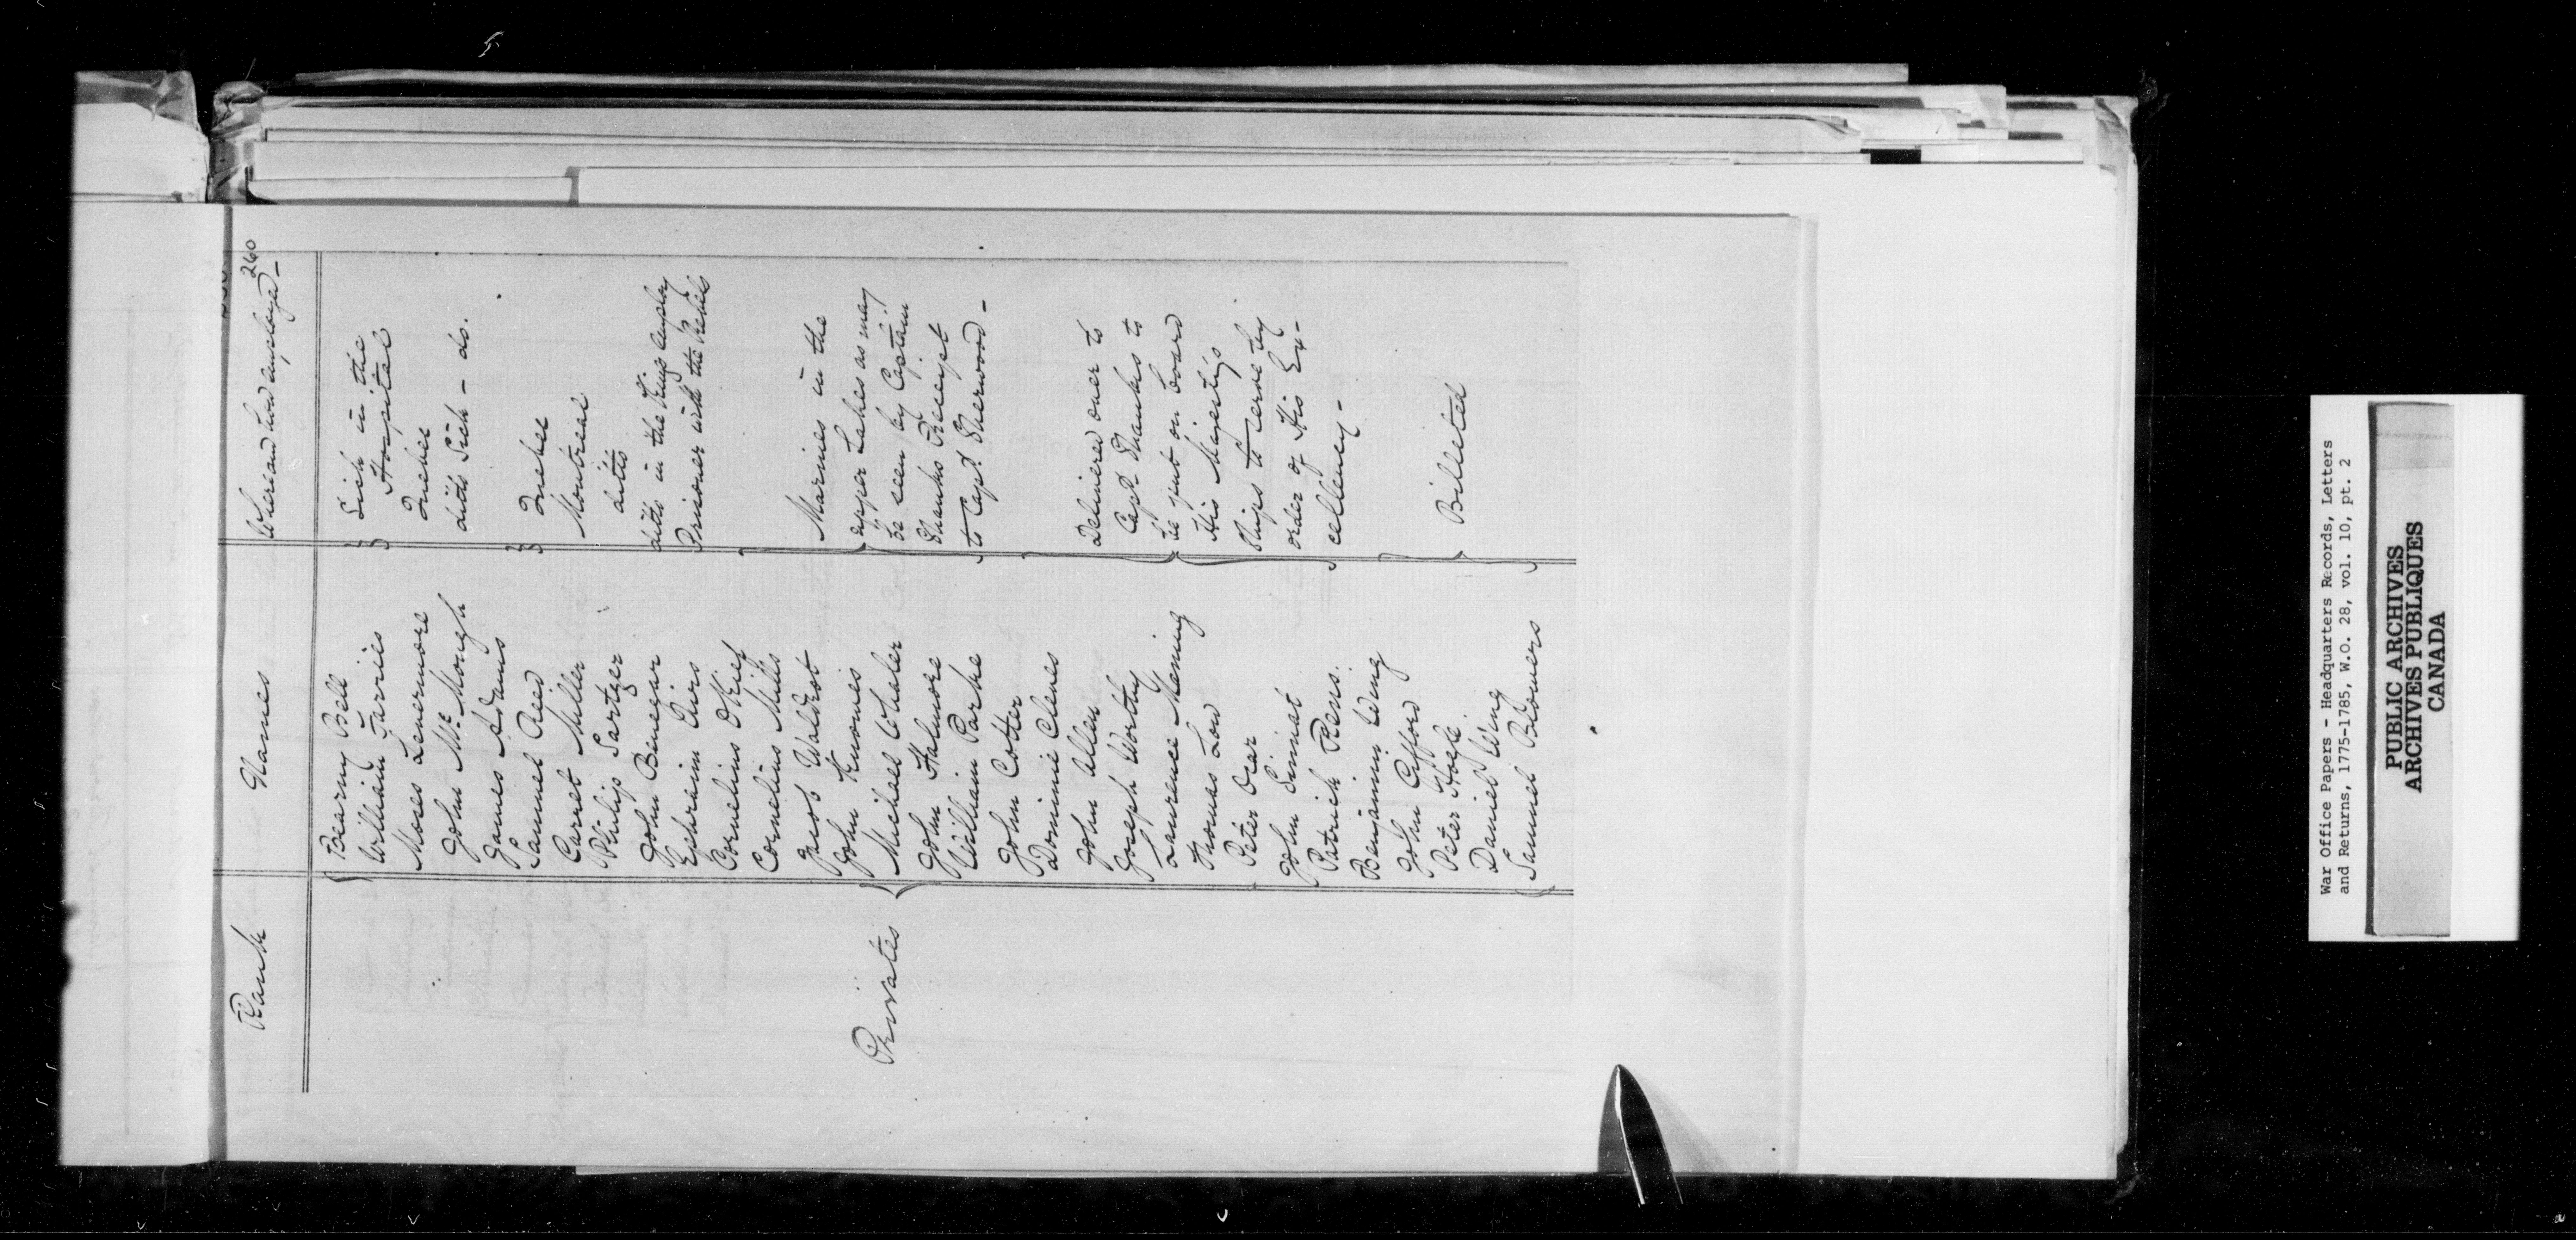 260
Rank Names Where and how employed -
Bearny Bell
William Farries
Sick in the
Hospital
Moses Levermore Quebec
John Mc. Mongh ditto Sick - do.
James Adams
Samuel Reed
Quebec
Carret Miller Montreal
Philip Sartzer ditto
John Binegar ditto in the Kings employ
Ephraim Puirs Prisoner with the Rebels
Cornelius OKief
Cornelius Mills
Jacob Waldrot
John Knowies
Michael Wheler
John Halmore
William Parke
John Cotter
Marines in the
upper Lakes as may
be seen by Captain
Shanks Receipt
to Capt. Sherwood -
Privates
Dominie Clenes
John Allen
Joseph Worthy
Laurence Mening
Thomas Low
Peter Drar
John Simiat
Patrick Rens.
Delivered over to
Capt. Shanks to
be put on board
His Majesty's
Ships to serve by
order of His Ex-
cellency -
Benjamin Wing
John Gifford
Peter Hogle
Daniel Wing
Samuel Blowers
Billeted
War Office Papers - Headquarters Records, Letters
and Returns, 1775-1785, W.O. 28, vol. 10, pt. 2
PUBLIC ARCHIVES
ARCHIVES PUBLIQUES
CANADA